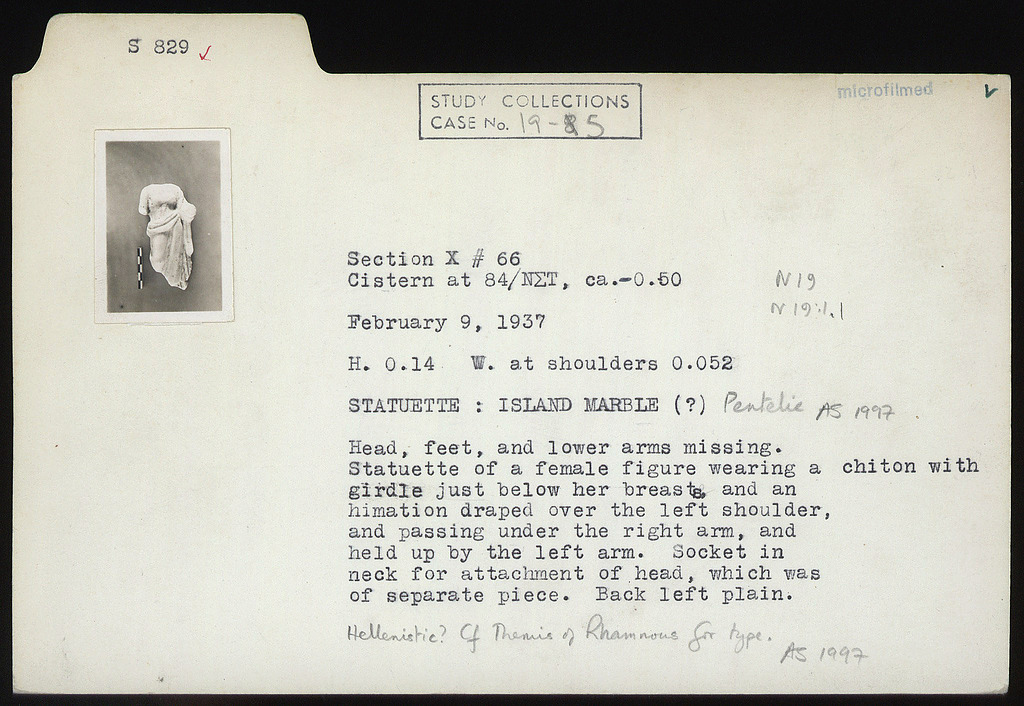 S 829 ✓
STUDY COLLECTIONS
CASE No. 19-85
microfilmed ✓
Section X # 66
Cistern at 84/ΝΣΤ, ca.-0.50
N 19
N 19:1.1
February 9, 1937
H. 0.14 W. at shoulders 0.052
STATUETTE : ISLAND MARBLE (?) Pentelic AS 1997.
Head, feet, and lower arms missing.
Statuette of a female figure wearing a chiton with
girdle just below her breasts, and an
himation draped over the left shoulder,
and passing under the right arm, and
held up by the left arm. Socket in
neck for attachment of head, which was
of separate piece. Back left plain.
Hellenistic? Cf Themis of Rhamnous for type.
AS 1997